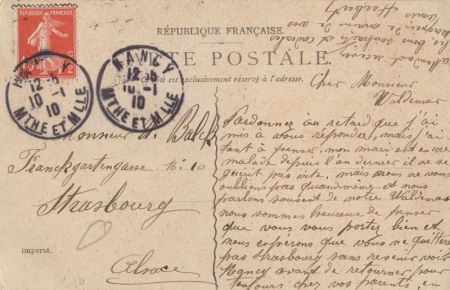 RÉPUBLIQUE FRANÇAISE
CARTE POSTALE
Ce côté est exclusivement réservé à l'adresse.
NANCY
12
10-1
10
MTHE ET MLLE
NANCY
12
10-1
10
MTHE ET MLLE
Monsieur W. Balck
Franckgartengasse No 10
Strasbourg
Alsace
importé.
Cher Monsieur
Waldemar
Pardonnez au retard que j'ai
mis à vous répondre, mais j'ai
tant à penser, mon mari est encore
malade depuis l'an dernier il ne se
guérit pas vite, mais nous ne vous
oublions pas quand même et nous
parlons souvent de notre Waldemar
nous sommes heureux de penser
que vous vous portez bien et
nous espérons que vous ne quitterez
pas Strasbourg sans revenir voir
Nancy avant de retourner pour
toujours chez vos parents, en